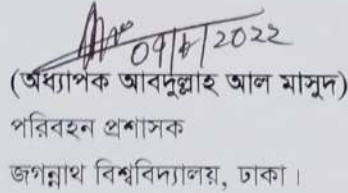 04/8/2022
(অধ্যাপক আবদুল্লাহ আল মাসুদ)
পরিবহন প্রশাসক
জগন্নাথ বিশ্ববিদ্যালয়, ঢাকা।